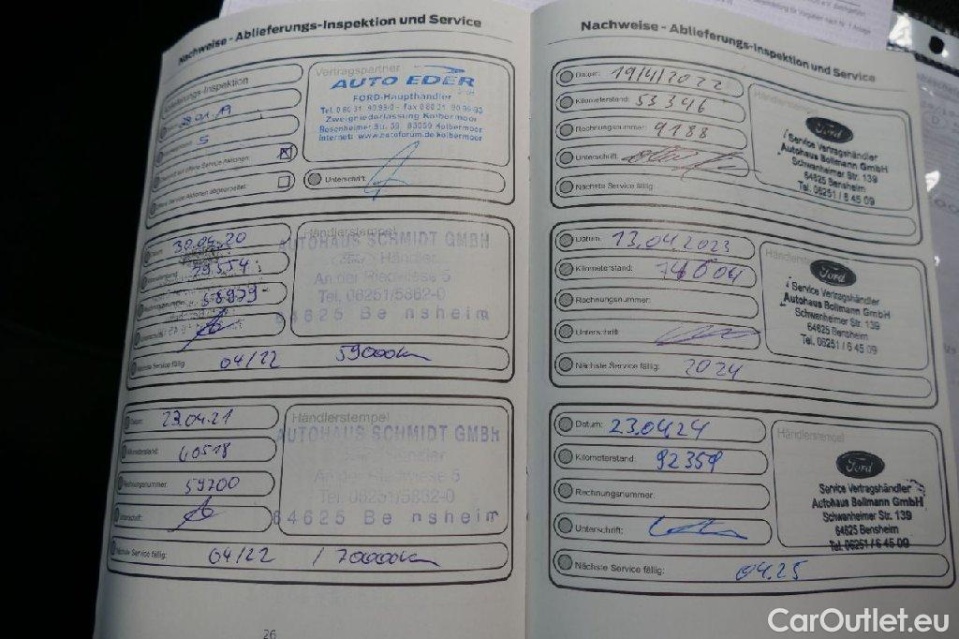 Nachweise - Ablieferungs-Inspektion und Service
Ablieferungs-Inspektion
28.01.19
5
Vertragspartner
AUTO EDER
FORD-Haupthändler
Zweigniederlassung Kolbermoor
Rosenheimer Str. 59, 83059 Kolbermoor
Unterschrift:
Datum: 30.04.20
29.554
58979
Nächste Service fällig: 04/22 59000km
Händlerstempel
AUTOHAUS SCHMIDT GMBH
Ford - Händler
An der Riedwiese 5
Tel. 06251/5862-0
64625 Bensheim
Datum: 23.04.21
Kilometerstand: 40518
Rechnungsnummer: 59700
Unterschrift:
Nächste Service fällig: 04/22 / 70000km
Händlerstempel
AUTOHAUS SCHMIDT GMBH
Ford - Händler
An der Riedwiese 5
Tel. 06251/5862-0
64625 Bensheim
26
Nachweise - Ablieferungs-Inspektion und Service
Datum: 19/4/2022
Kilometerstand: 53346
Rechnungsnummer: 9188
Unterschrift:
Nächste Service fällig:
Händlerstempel
Ford
Service Vertragshändler
Autohaus Bollmann GmbH
Schwanheimer Str. 139
64625 Bensheim
Tel. 06251 / 6 45 09
Datum: 13.04.2023
Kilometerstand: 74604
Rechnungsnummer:
Unterschrift:
Nächste Service fällig: 2024
Händlerstempel
Ford
Service Vertragshändler
Autohaus Bollmann GmbH
Schwanheimer Str. 139
64625 Bensheim
Tel. 06251 / 6 45 09
Datum: 23.04.24
Kilometerstand: 92359
Rechnungsnummer:
Unterschrift:
Nächste Service fällig: 04.25
Händlerstempel
Ford
Service Vertragshändler
Autohaus Bollmann GmbH
Schwanheimer Str. 139
64625 Bensheim
Tel. 06251 / 6 45 09
CarOutlet.eu